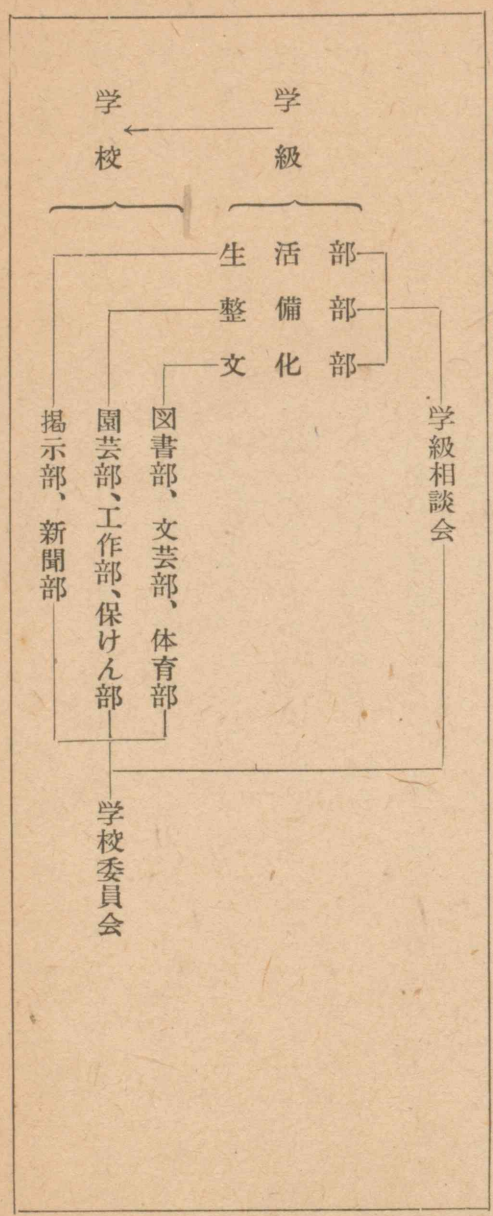 学級
学校
生活部
整備部
文化部
学級相談会
図書部、文芸部、体育部
園芸部、工作部、保けん部
掲示部、新聞部
学校委員会